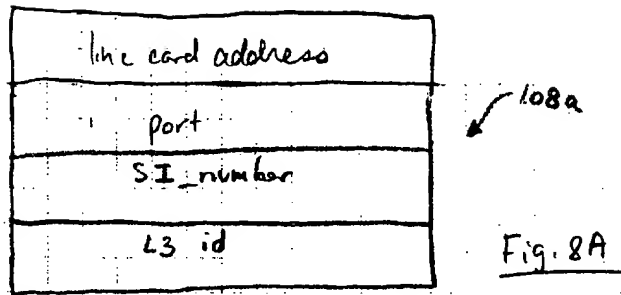 line card address
port
108a
SI_number
L3 id
Fig. 8A